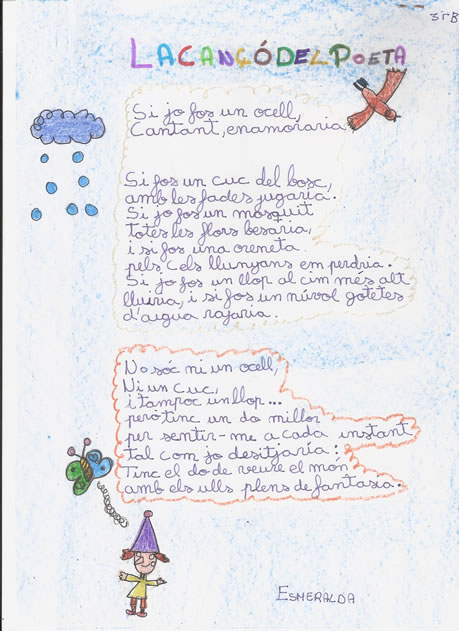 3r B
LA CANÇÓ DEL POETA
Si jo fos un ocell,
Cantant, enamoraria
Si fos un cuc del bosc,
amb les fades jugaria.
Si jo fos un mosquit
totes les flors besaria,
i si fos una oreneta
pels cels llunyans em perdria.
Si jo fos un llop al cim més alt
lluiria, i si fos un núvol gotetes
d'aigua rajaria.
No sóc ni un ocell,
Ni un cuc,
i tampoc un llop...
però tinc un do millor
per sentir-me a cada instant
tal com jo desitjaria:
Tinc el do de veure el món
amb els ulls plens de fantasia.
ESMERALDA